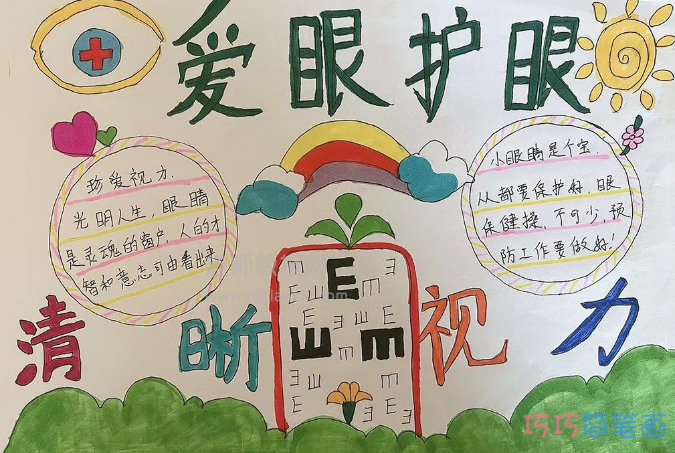 爱眼护眼
珍爱视力.
光明人生,眼睛
是灵魂的窗户,人的才
智和意志可由看出来
小眼睛是个宝.
从都要保护好,眼
保健操,不可少,预
防工作要做好!
E
E
m
清晰视力
巧巧简笔画